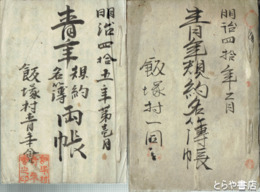 明治四拾年三月
青年規約名簿帳
飯塚村一同
明治四拾五年第壱月
青年
規約
名簿
両帳
飯塚村青年会
とらや書店